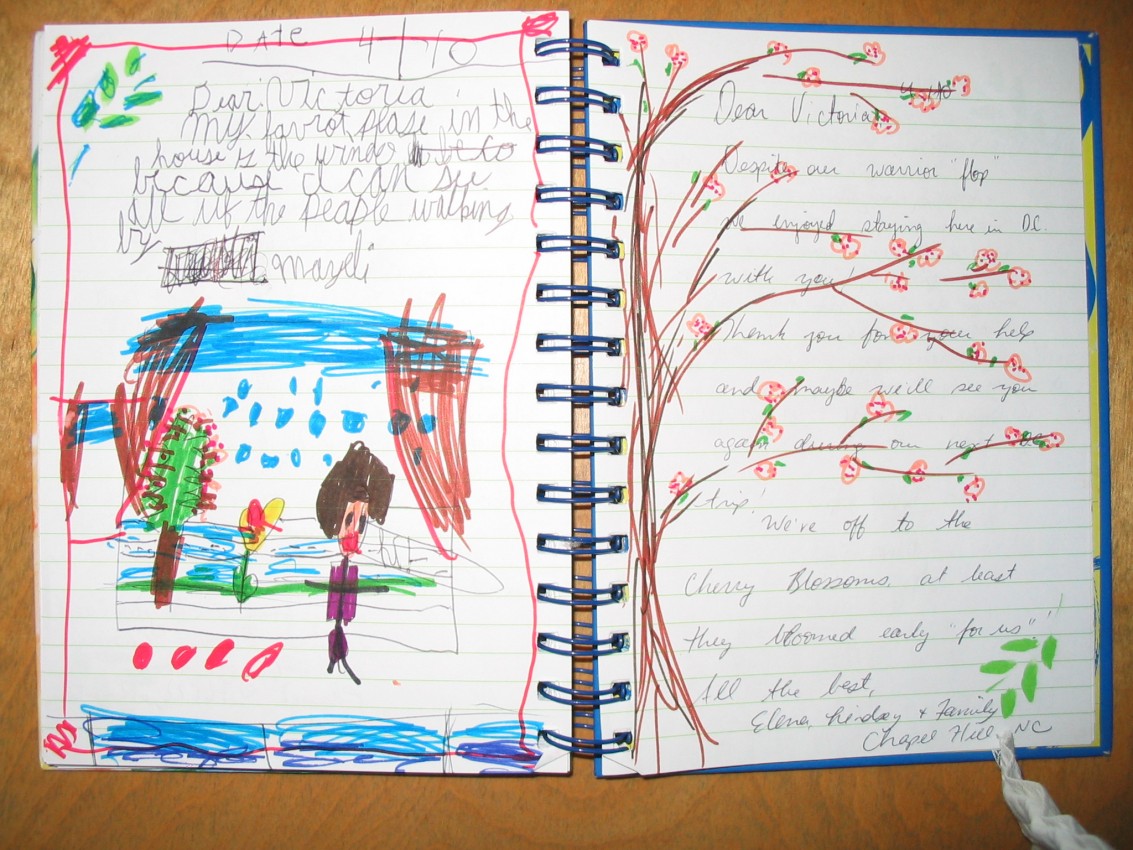 DATE 4/10
Dear Victoria
my favrot plase in the
house is the window
because I can see
all uf the peaple walking
by
Dear Victoria,
Despite our warrior "flop"
we enjoyed staying here in DC
with you!
Thank you for your help
and maybe we'll see you
again during our next DC
trip!
We're off to the
Cherry Blossoms at least
they bloomed early "for us"!
All the best,
Elena, Lindsay & Family
Chapel Hill, NC